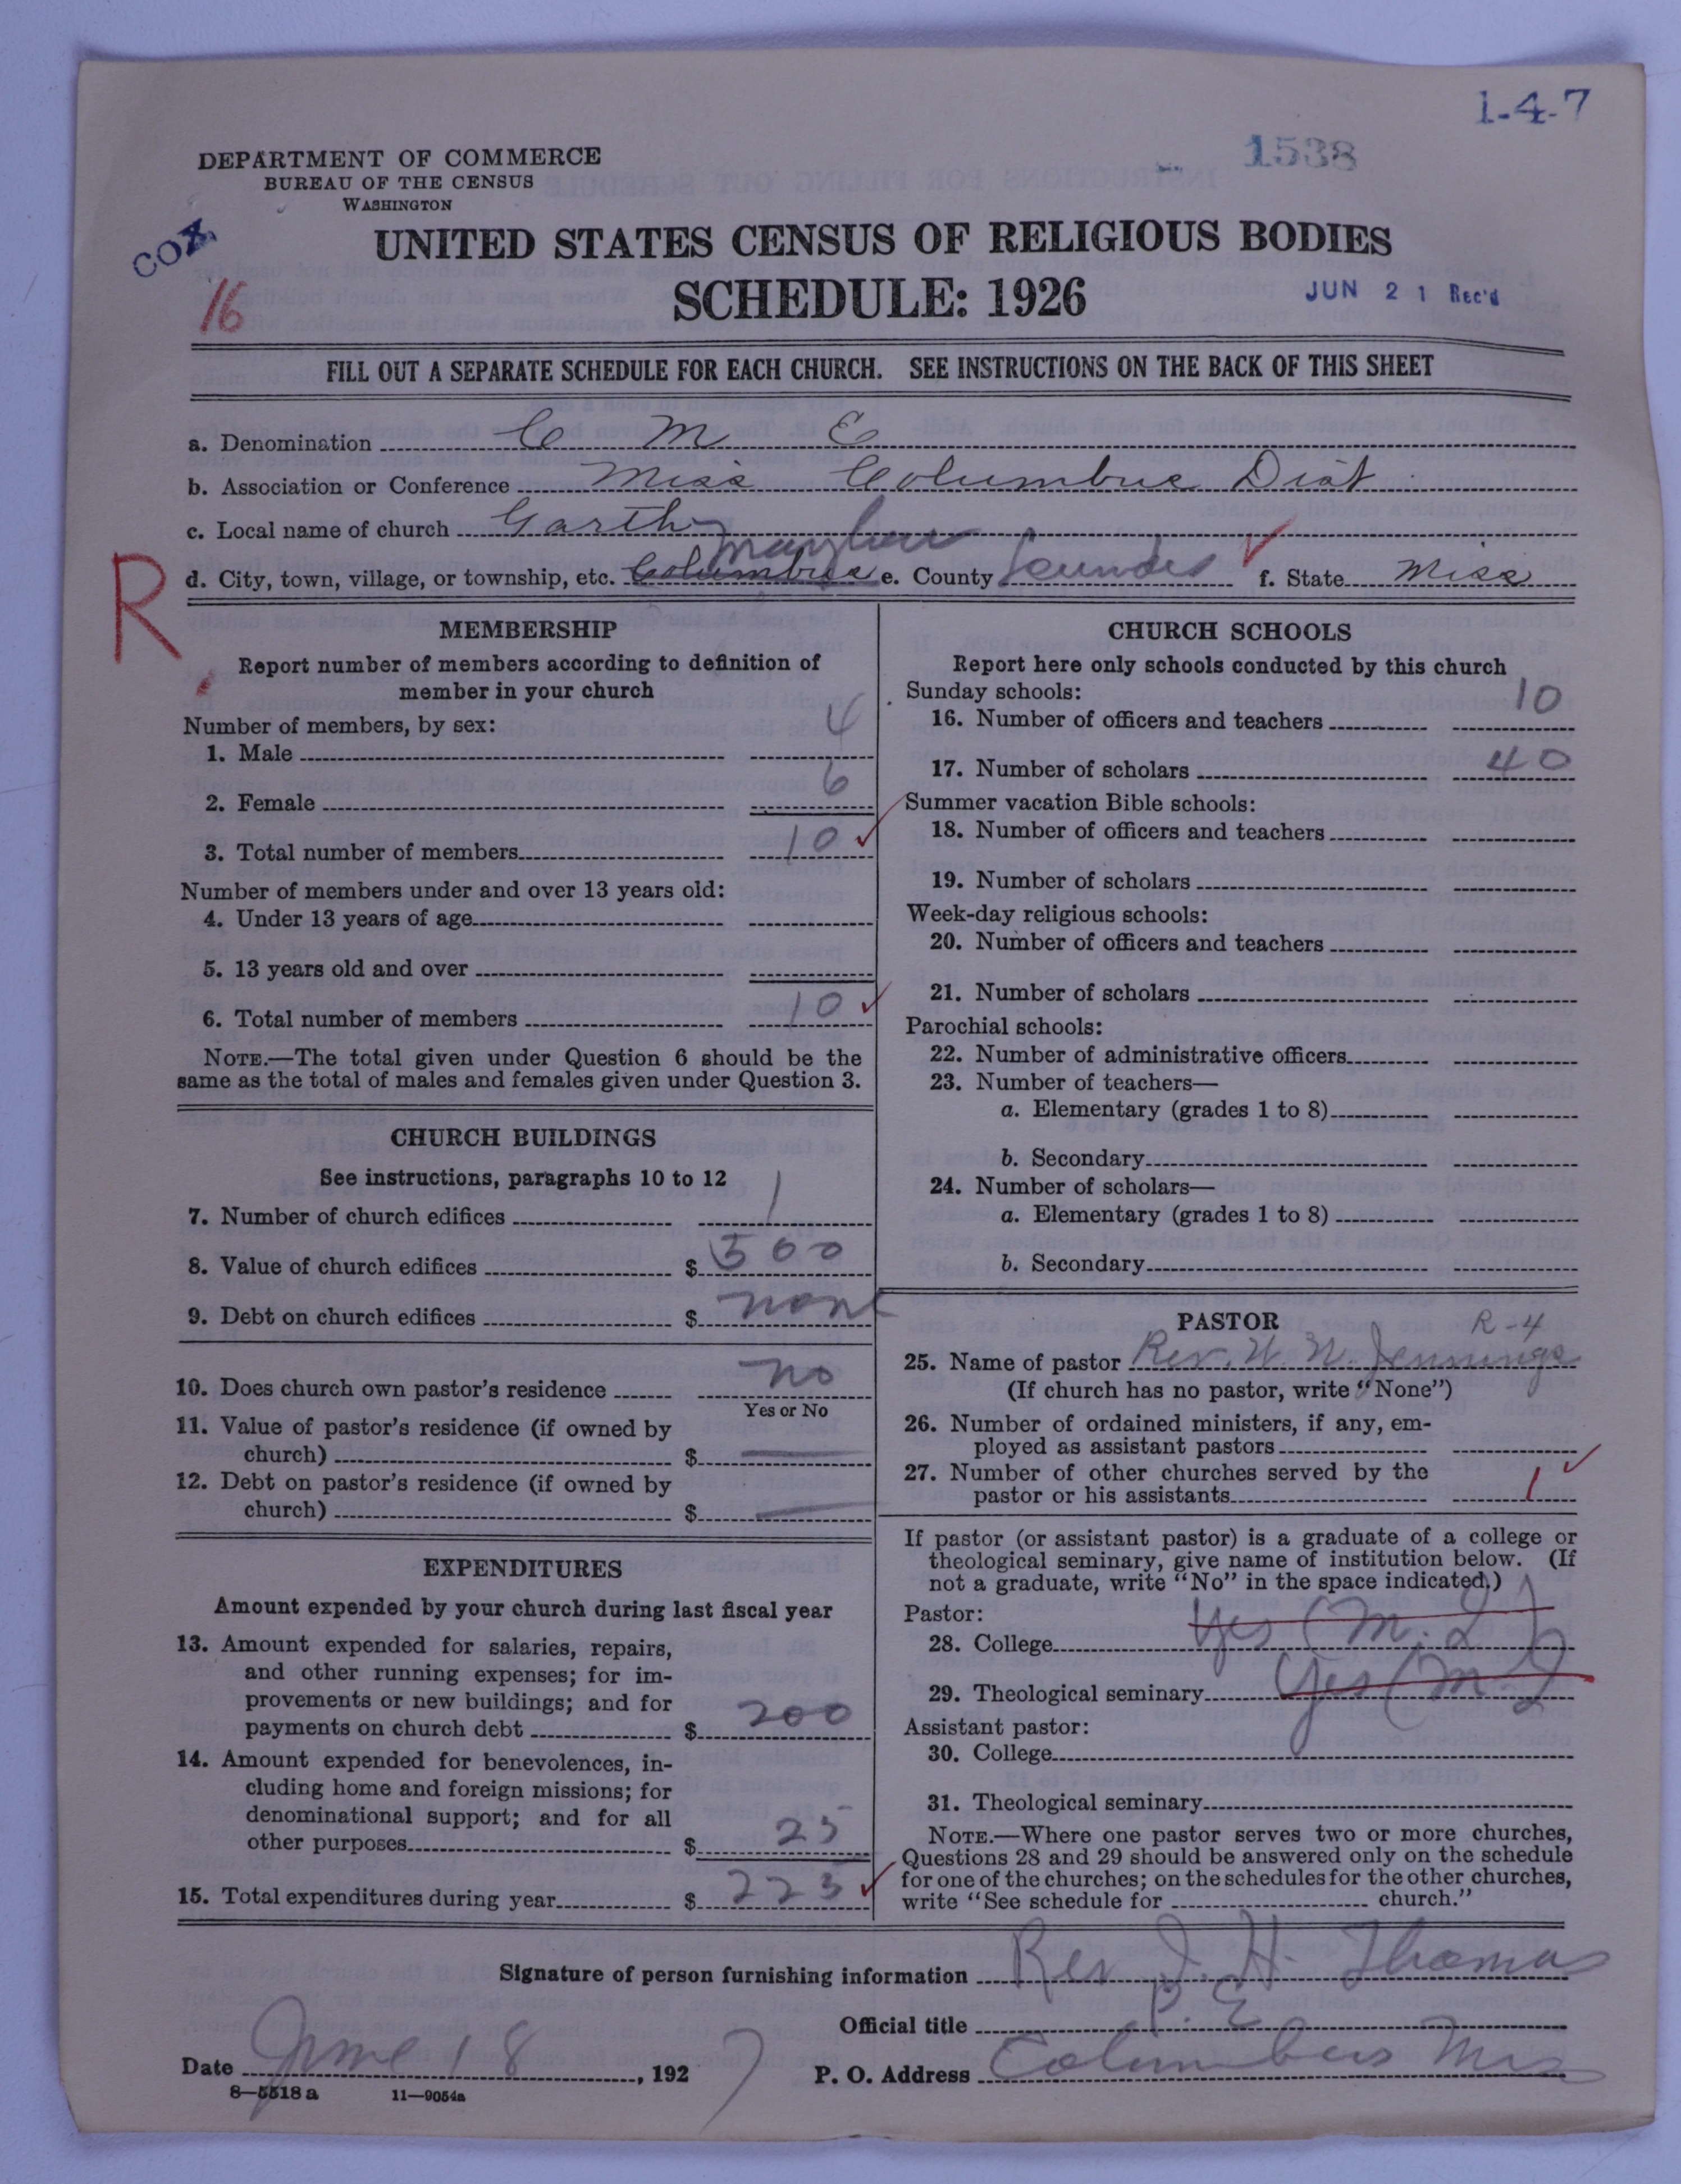 1-4-7
1538
DEPARTMENT OF COMMERCE
BUREAU OF THE CENSUS
WASHINGTON
COX
16
UNITED STATES CENSUS OF RELIGIOUS BODIES
SCHEDULE: 1926
JUN 21 Rec'd
FILL OUT A SEPARATE SCHEDULE FOR EACH CHURCH. SEE INSTRUCTIONS ON THE BACK OF THIS SHEET
a. Denomination C M E
b. Association or Conference Miss Columbus Dist
c. Local name of church Garth
Mayhew
R
d. City, town, village, or township, etc. Columbus e. County Lowndes f. State Miss
MEMBERSHIP
Report number of members according to definition of
member in your church
Number of members, by sex:
1. Male 4
2. Female 6
3. Total number of members 10
Number of members under and over 13 years old:
4. Under 13 years of age
5. 13 years old and over
6. Total number of members 10
NOTE.—The total given under Question 6 should be the
same as the total of males and females given under Question 3.
CHURCH BUILDINGS
See instructions, paragraphs 10 to 12
7. Number of church edifices 1
8. Value of church edifices $ 500
9. Debt on church edifices $ none
10. Does church own pastor's residence no
Yes or No
11. Value of pastor's residence (if owned by
church) $ —
12. Debt on pastor's residence (if owned by
church) $ —
EXPENDITURES
Amount expended by your church during last fiscal year
13. Amount expended for salaries, repairs,
and other running expenses; for im-
provements or new buildings; and for
payments on church debt $ 200
14. Amount expended for benevolences, in-
cluding home and foreign missions; for
denominational support; and for all
other purposes $ 25
15. Total expenditures during year $ 225
CHURCH SCHOOLS
Report here only schools conducted by this church
Sunday schools:
16. Number of officers and teachers 10
17. Number of scholars 40
Summer vacation Bible schools:
18. Number of officers and teachers
19. Number of scholars
Week-day religious schools:
20. Number of officers and teachers
21. Number of scholars
Parochial schools:
22. Number of administrative officers
23. Number of teachers—
a. Elementary (grades 1 to 8)
b. Secondary
24. Number of scholars—
a. Elementary (grades 1 to 8)
b. Secondary
PASTOR R-4
25. Name of pastor Rev. W. N. Jennings
(If church has no pastor, write "None")
26. Number of ordained ministers, if any, em-
ployed as assistant pastors
27. Number of other churches served by the
pastor or his assistants 1
If pastor (or assistant pastor) is a graduate of a college or
theological seminary, give name of institution below. (If
not a graduate, write "No" in the space indicated.)
Pastor:
28. College Yes (M. I)
29. Theological seminary Yes (M. I)
Assistant pastor:
30. College
31. Theological seminary
NOTE.—Where one pastor serves two or more churches,
Questions 28 and 29 should be answered only on the schedule
for one of the churches; on the schedules for the other churches,
write "See schedule for church."
Signature of person furnishing information Rev J. H. Thomas
Official title P. E
Date June 18, 1927 P. O. Address Columbus Miss
8—5518 a 11—9054a